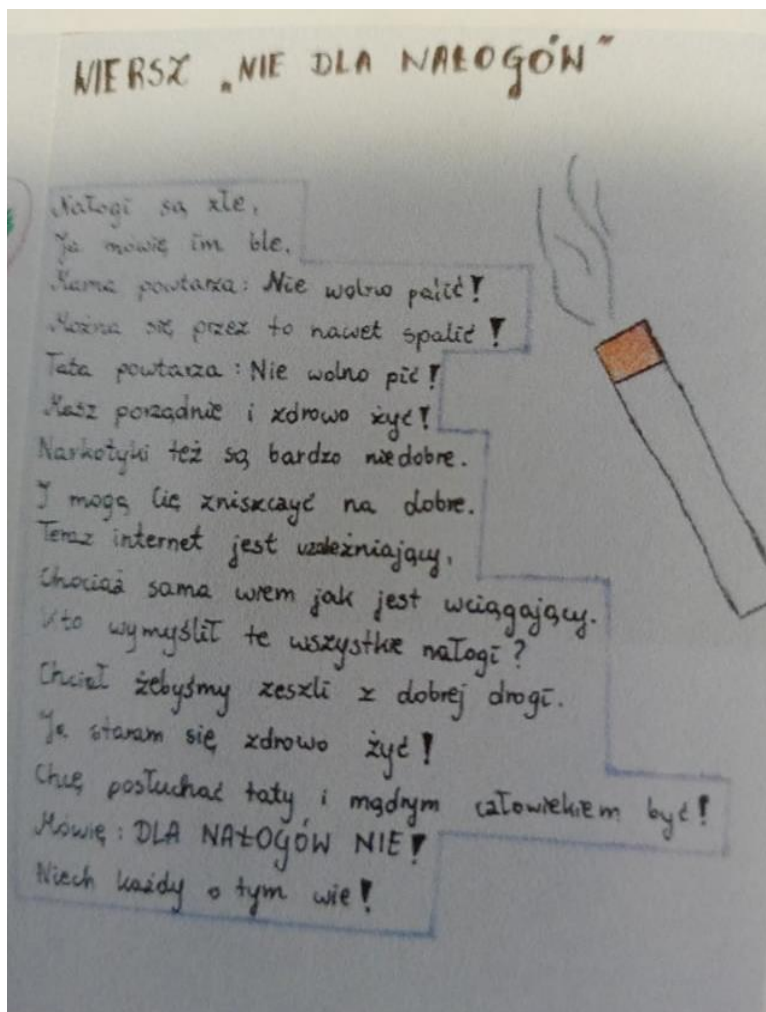 WIERSZ „NIE DLA NAŁOGÓW”
Nałogi są złe,
Ja mówię im ble.
Mama powtarza: Nie wolno palić!
Można się przez to nawet spalić!
Tata powtarza: Nie wolno pić!
Masz porządnie i zdrowo żyć!
Narkotyki też są bardzo niedobre.
I mogą Cię zniszczyć na dobre.
Teraz internet jest uzależniający,
Chociaż sama wiem jak jest wciągający.
Kto wymyślił te wszystkie nałogi?
Chciał żebyśmy zeszli z dobrej drogi.
Ja staram się zdrowo żyć!
Chcę posłuchać taty i mądrym człowiekiem być!
Mówię: DLA NAŁOGÓW NIE!
Niech każdy o tym wie!